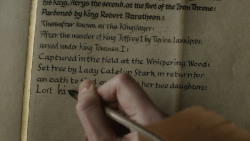 his King, Aerys the second, at the foot of the Iron Throne:
Pardoned by King Robert Baratheon:
Thereafter known as the Kingslayer:
After the murder of King Joffrey I by Tyrion Lannister:
served under King Tommen I:
Captured in the field at the Whispering Wood:
Set free by Lady Catelyn Stark in return for
an oath to find her two daughters:
Lost his